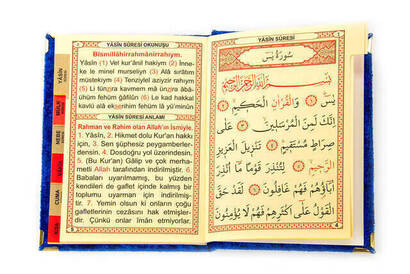 YÂSÎN SÛRESİ OKUNUŞU
Bismillâhirrahmânirrahıym.
Yâsîn (1) Vel kur'ânil hakiym (2) İnne-
ke le minel murseliyn (3) Alâ sırâtım
müstekıym (4) Tenziylel aziyzir rahıym
(5) Li tünzira kavmem mâ ünzira âbâ-
ühüm fehüm ğâfilûn (6) Le kad hakkal
kavlü alâ ekserihim fehüm lâ yü'minûn
YÂSÎN SÛRESİ ANLAMI
Rahman ve Rahim olan Allah'ın İsmiyle.
1. Yâsîn, 2. Hikmet dolu Kur'an hakkı
için, 3. Sen şüphesiz peygamberler-
densin. 4. Dosdoğru yol üzerindesin.
5. (Bu Kur'an) Gâlip ve çok merha-
metli Allah tarafından indirilmiştir. 6.
Babaları uyarılmamış, bu yüzden
kendileri de gaflet içinde kalmış bir
toplumu uyarman için indirilmiş-
tir. 7. Yemin olsun ki onların çoğu
gafletlerinin cezasını hak etmişler-
dir. Çünkü onlar îman etmiyorlar.
YÂSÎN
MÜLK
NEBE
CUMA
YÂSÎN SÛRESİ
سُورَةُ يٰسٓ
بِسْمِ اللّٰهِ الرَّحْمٰنِ الرَّحِيمِ
يٰسٓ ﴿١﴾ وَالْقُرْاٰنِ الْحَكِيمِ ﴿٢﴾
اِنَّكَ لَمِنَ الْمُرْسَلِينَ ﴿٣﴾ عَلٰى
صِرَاطٍ مُسْتَقِيمٍ ﴿٤﴾ تَنْزِيلَ الْعَزِيزِ
الرَّحِيمِ ﴿٥﴾ لِتُنْذِرَ قَوْمًا مَٓا اُنْذِرَ
اٰبَٓاؤُهُمْ فَهُمْ غَافِلُونَ ﴿٦﴾ لَقَدْ حَقَّ
الْقَوْلُ عَلٰٓى اَكْثَرِهِمْ فَهُمْ لَا يُؤْمِنُونَ